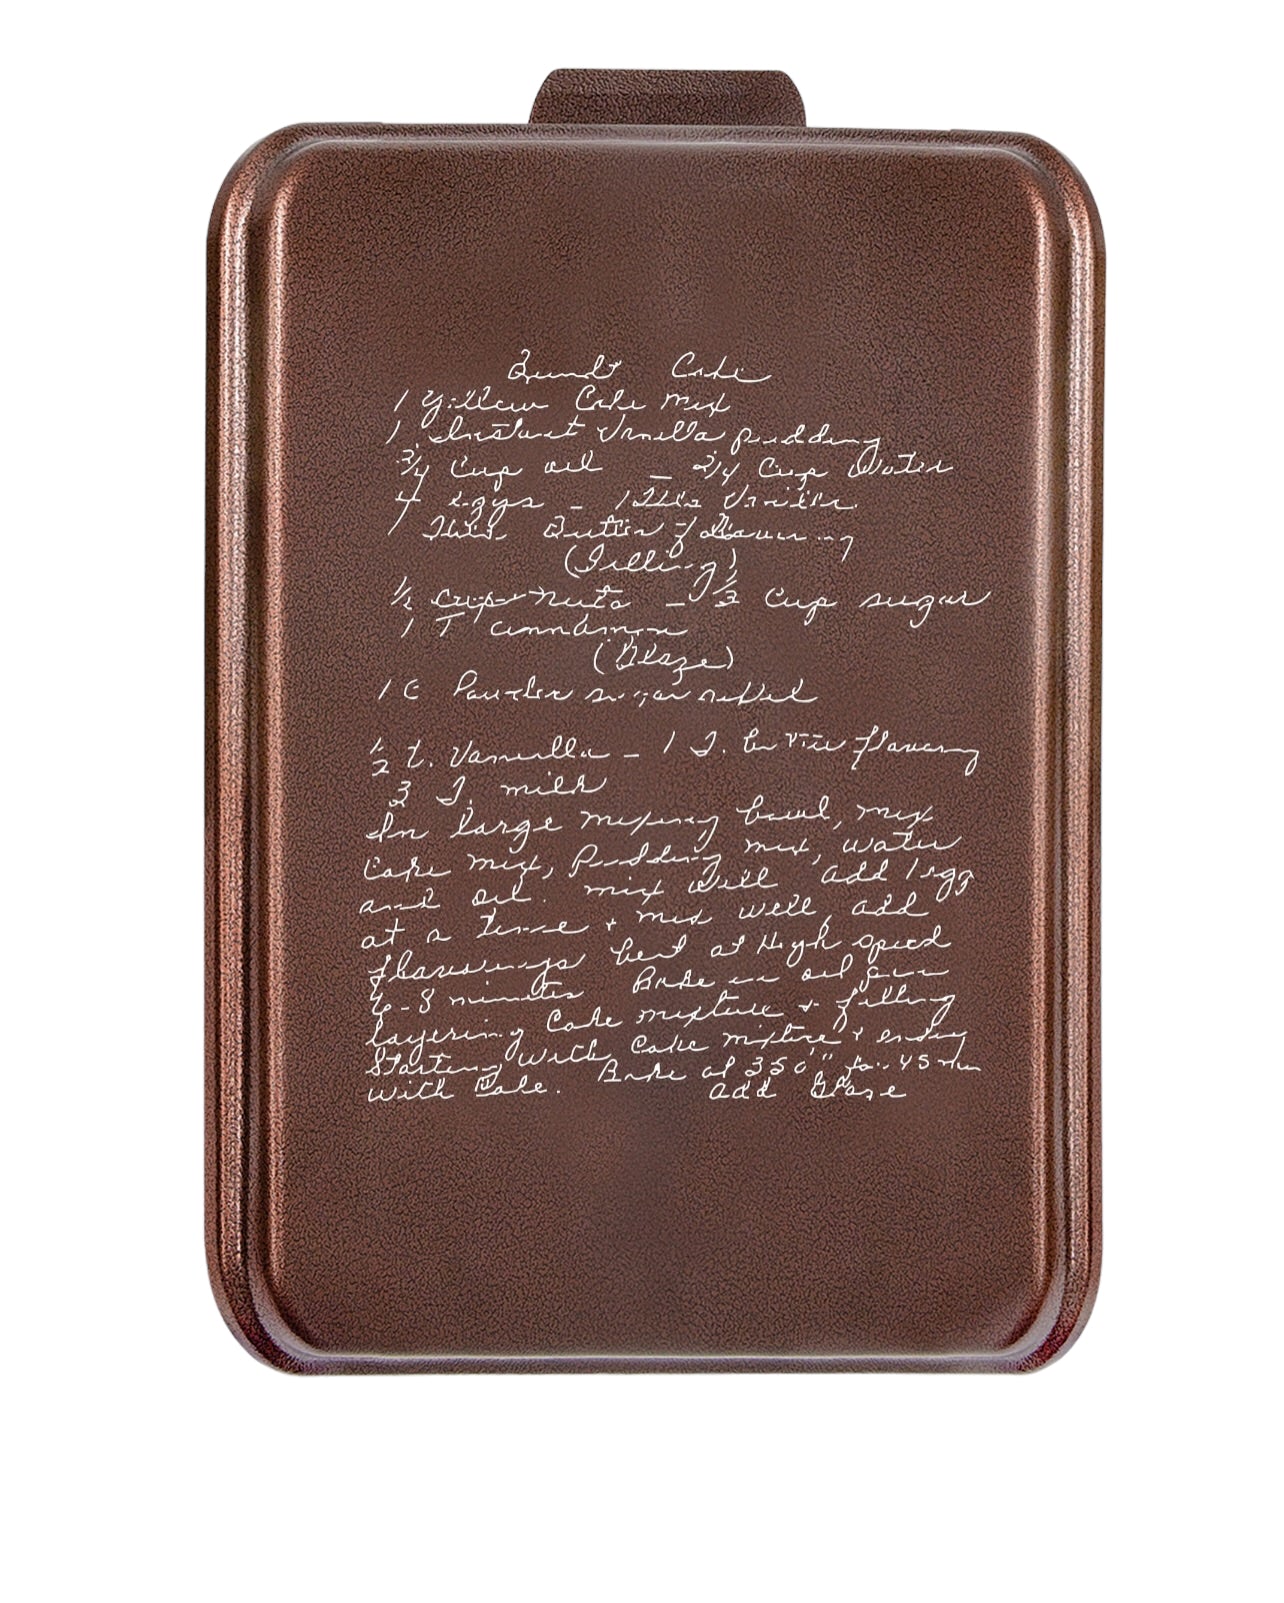 Bundt Cake
1 Yellow Cake Mix
1 Instant Vanilla pudding
3/4 Cup oil – 3/4 Cup Water
4 eggs – 1 Tbls Vanilla
1 Tbls. Butter flavoring
(Filling)
1/2 cup nuts – 1/3 Cup sugar
1 T cinnamon
(Glaze)
1 C Powder sugar sifted
1/2 t. Vanilla – 1 T. butter flavoring
3 T. milk
In large mixing bowl, mix
Cake mix, Pudding mix, water
and oil. mix well add 1 egg
at a time + mix well, add
flavorings beat at High speed
6-8 minutes Bake in oil pan
layering Cake mixture + filling
Starting with Cake mixture + ending
with Cake. Bake at 350° for 45 min
add Glaze